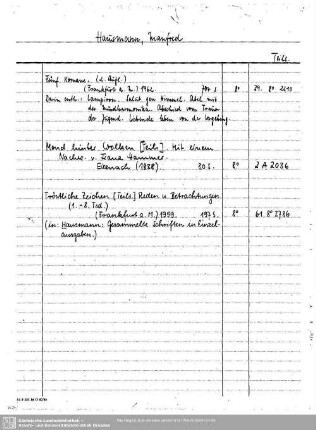 Hausmann, Manfred
Teils.
Fünf Romane. (1. Aufl.)
(Frankfurt a. M.) 1962. S 8° 8° 2610
Darin enth.: Lampioon. Salut gen Himmel. Abel mit
der Mundharmonika. Abschied von
der Jugend. Liebende leben von der Vergebung.
Mond hinter Wolken [Teils]. Mit einem
Nachw. v. Hammer.
Eisenach (1938). 30 S. 8° 2 A 2086
Tröstliche Zeichen [Teils.] Reden u. Betrachtungen
(1.-8. Tsd.)
(Frankfurt a. M.) 1959. 197 S. 8° 61. 8° 3786
(in: Hausmann: Gesammelte Schriften in Einzel-
ausgaben.)